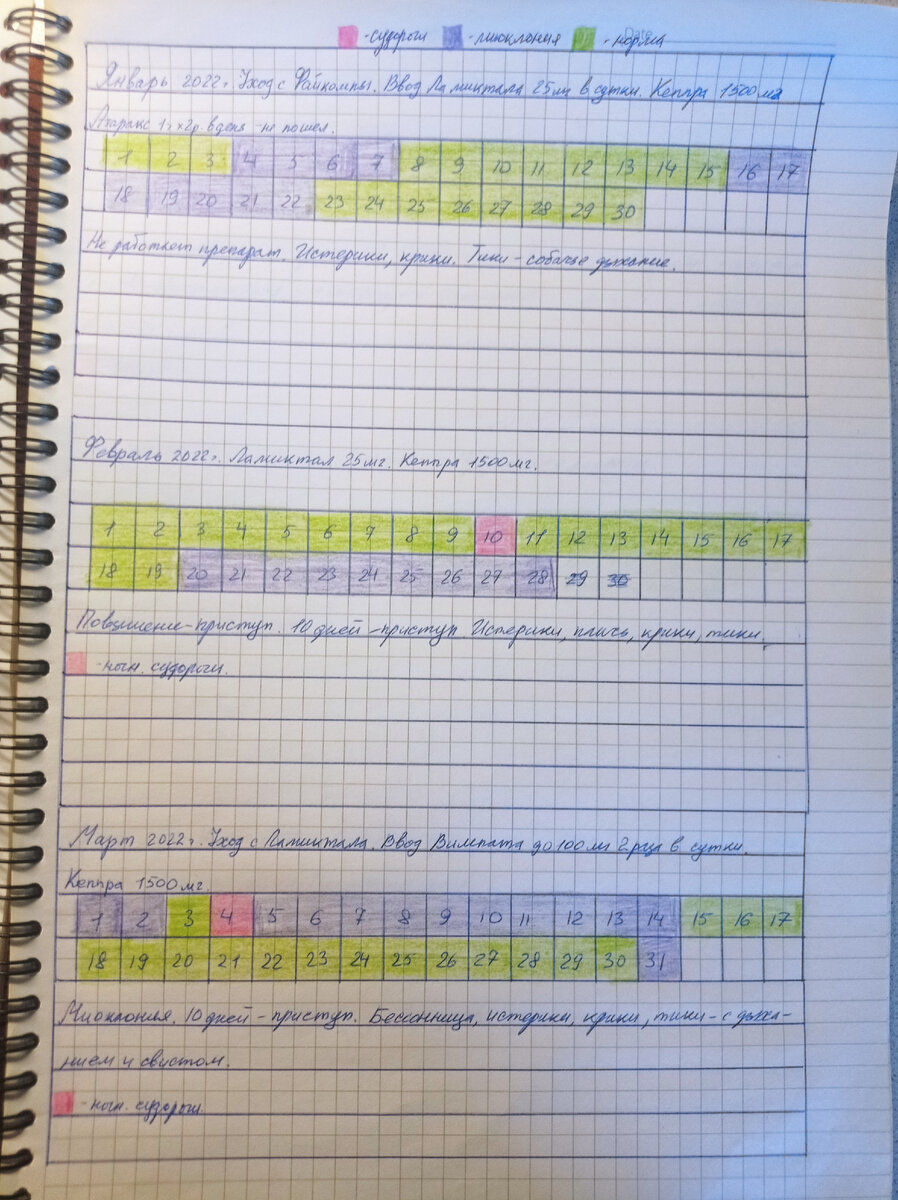 - судороги - миоклония - норма
Date
Январь 2022г. Уход с Файкомпы. Ввод Ламиктала 25мг в сутки. Кеппра 1500мг
Атаракс 1т×2р. в день не пошел.
1 2 3 4 5 6 7 8 9 10 11 12 13 14 15 16 17
18 19 20 21 22 23 24 25 26 27 28 29 30
Не работает препарат. Истерики, крики. Тики - собачье дыхание.
Февраль 2022г. Ламиктал 25мг. Кеппра 1500мг.
1 2 3 4 5 6 7 8 9 10 11 12 13 14 15 16 17
18 19 20 21 22 23 24 25 26 27 28 29 30
Повышение-приступ. 10 дней - приступ. Истерики, плачь, крики, тики.
- ночн. судороги.
Март 2022г. Уход с Ламиктала. Ввод Вимпата до 100мг 2 раза в сутки.
Кеппра 1500мг.
1 2 3 4 5 6 7 8 9 10 11 12 13 14 15 16 17
18 19 20 21 22 23 24 25 26 27 28 29 30 31
Миоклония. 10 дней - приступ. Бессонница, истерики, крики, тики - с дыха-
нием и свистом.
- ночн. судороги.